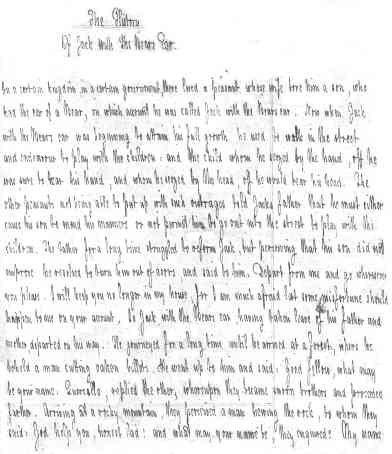 The History
Of Jack with the Bears Ear.
In a certain kingdom in a certain government, there lived a peasant, whose wife bore him a son, who
had the ear of a Bear, on which account he was called Jack with the Bears ear. Now when Jack
with the Bears ear was beginning to attain his full growth he used to walk in the street
and endeavour to play with the children: and the child whom he seized by the hand, off he
was sure to tear his hand, and whom he seized by the head, off he would tear his head. The
other peasants not being able to put up with such outrages told Jacks father that he must either
cause his son to mend his manners or not permit him to go out into the street to play with the
children. The father for a long time struggled to reform Jack but perceiving that his son did not
improve he resolved to turn him out of doors and said to him. Depart from me and go wheresoever
you please. I will keep you no longer in my house, for I am much afraid that some misfortune should
happen to me on your account. So Jack with the Bears ear, having taken leave of his father and
mother departed on his way. He journeyed for a long time until he arrived at a forest, where he
beheld a man cutting oaken billets. He went up to him and said: Good fellow, what may
be your name. Quercillo, replied the other, whereupon they became sworn brothers and proceeded
farther. Arriving at a rocky mountain, they perceived a man hewing the rock, to whom they
said: God help you, honest lad: and what may your name be, they enquired: My name